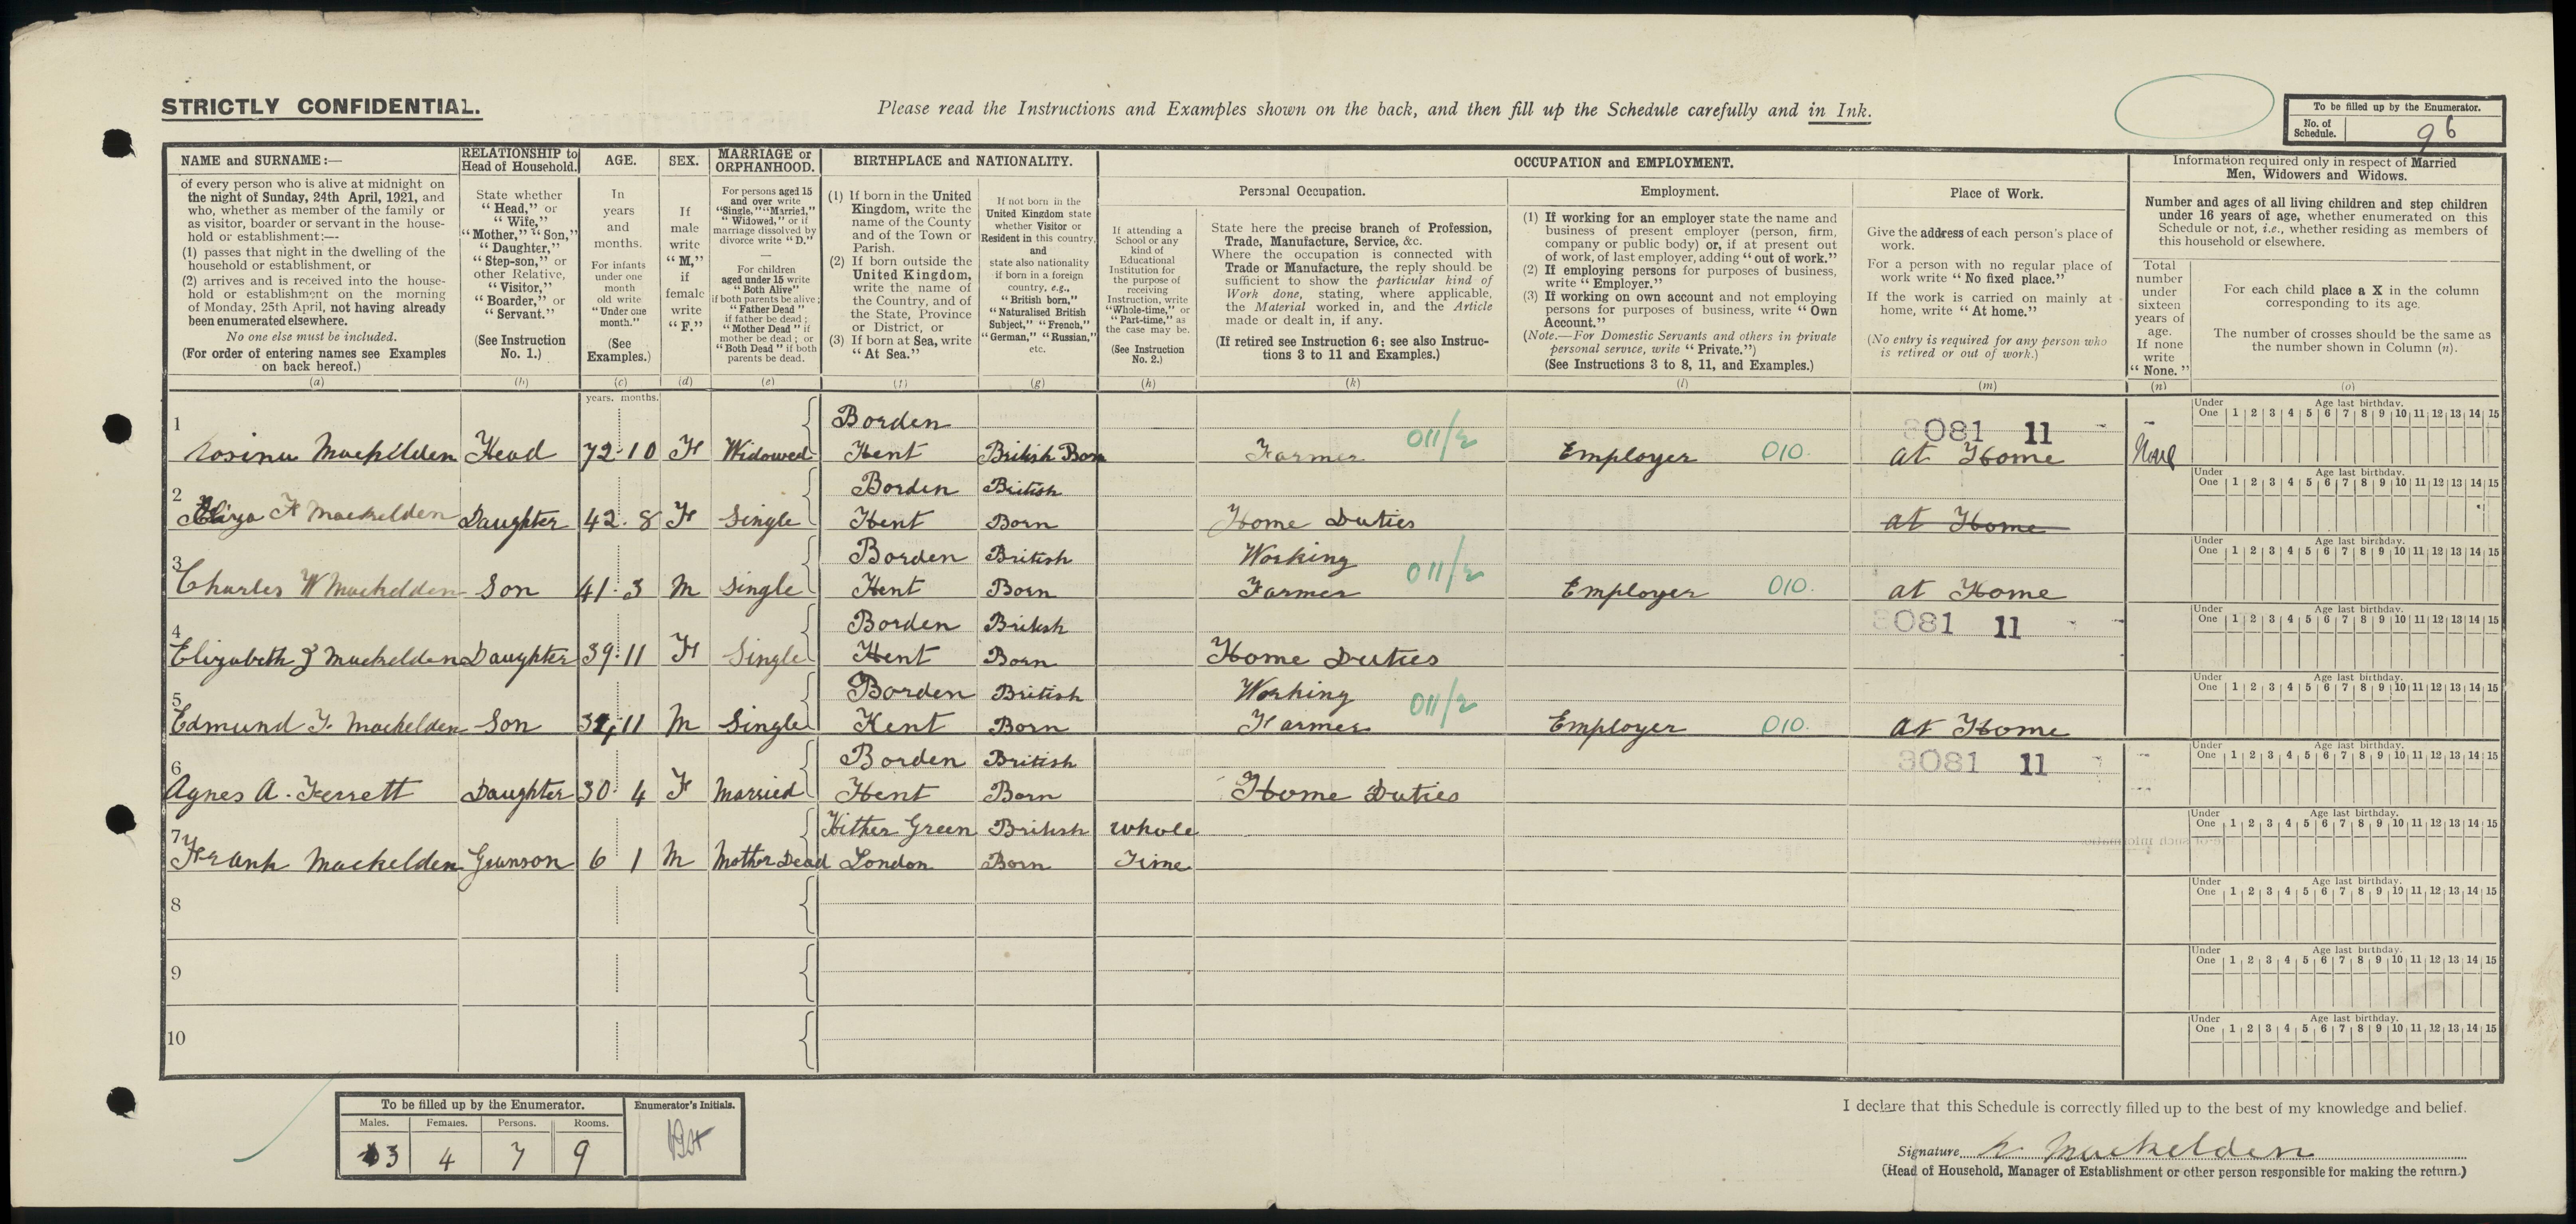 STRICTLY CONFIDENTIAL.
Please read the Instructions and Examples shown on the back, and then fill up the Schedule carefully and in Ink.
To be filled up by the Enumerator.
No. of Schedule. 96
NAME and SURNAME:—
of every person who is alive at midnight on
the night of Sunday, 24th April, 1921, and
who, whether as member of the family or
as visitor, boarder or servant in the house-
hold or establishment:—
(1) passes that night in the dwelling of the
household or establishment, or
(2) arrives and is received into the house-
hold or establishment on the morning
of Monday, 25th April, not having already
been enumerated elsewhere.
No one else must be included.
(For order of entering names see Examples
on back hereof.)
(a)
RELATIONSHIP to
Head of Household.
State whether
"Head," or
"Wife,"
"Mother," "Son,"
"Daughter,"
"Step-son," or
other Relative,
"Visitor,"
"Boarder," or
"Servant."
(See Instruction
No. 1.)
(b)
AGE.
In
years
and
months.
For infants
under one
month
old write
"Under one
month."
(See
Examples.)
(c)
SEX.
If
male
write
"M,"
if
female
write
"F."
(d)
MARRIAGE or
ORPHANHOOD.
For persons aged 15
and over write
"Single," "Married,"
"Widowed," or if
marriage dissolved by
divorce write "D."
—
For children
aged under 15 write
"Both Alive"
if both parents be alive;
"Father Dead"
if father be dead;
"Mother Dead" if
mother be dead; or
"Both Dead" if both
parents be dead.
(e)
BIRTHPLACE and NATIONALITY.
(1) If born in the United
Kingdom, write the
name of the County
and of the Town or
Parish.
(2) If born outside the
United Kingdom,
write the name of
the Country, and of
the State, Province
or District, or
(3) If born at Sea, write
"At Sea."
(f)
If not born in the
United Kingdom state
whether Visitor or
Resident in this country,
and
state also nationality
if born in a foreign
country, e.g.,
"British born,"
"Naturalised British
Subject," "French,"
"German," "Russian,"
etc.
(g)
OCCUPATION and EMPLOYMENT.
If attending a
School or any
kind of
Educational
Institution for
the purpose of
receiving
Instruction, write
"Whole-time," or
"Part-time," as
the case may be.
(See Instruction
No. 2.)
(h)
Personal Occupation.
State here the precise branch of Profession,
Trade, Manufacture, Service, &c.
Where the occupation is connected with
Trade or Manufacture, the reply should be
sufficient to show the particular kind of
Work done, stating, where applicable,
the Material worked in, and the Article
made or dealt in, if any.
(If retired see Instruction 6; see also Instruc-
tions 3 to 11 and Examples.)
(k)
Employment.
(1) If working for an employer state the name and
business of present employer (person, firm,
company or public body) or, if at present out
of work, of last employer, adding "out of work."
(2) If employing persons for purposes of business,
write "Employer."
(3) If working on own account and not employing
persons for purposes of business, write "Own
Account."
(Note.—For Domestic Servants and others in private
personal service, write "Private.")
(See Instructions 3 to 8, 11, and Examples.)
(l)
Place of Work.
Give the address of each person's place of
work.
For a person with no regular place of
work write "No fixed place."
If the work is carried on mainly at
home, write "At home."
(No entry is required for any person who
is retired or out of work.)
(m)
Information required only in respect of Married
Men, Widowers and Widows.
Number and ages of all living children and step children
under 16 years of age, whether enumerated on this
Schedule or not, i.e., whether residing as members of
this household or elsewhere.
Total
number
under
sixteen
years of
age.
If none
write
"None."
(n)
For each child place a X in the column
corresponding to its age.
The number of crosses should be the same as
the number shown in Column (n).
(o)
years. months.
1 Rosina Mackelden Head 72 10 F Widowed Borden Kent British Born Farmer 011/2 Employer 010. 3081 11 at Home None
Under One Age last birthday. 1 2 3 4 5 6 7 8 9 10 11 12 13 14 15
2 Eliza F Mackelden Daughter 42 8 F Single Borden Kent British Born Home Duties at Home
Under One Age last birthday. 1 2 3 4 5 6 7 8 9 10 11 12 13 14 15
3 Charles W Mackelden Son 41 3 M Single Borden Kent British Born Working Farmer 011/2 Employer 010. at Home
Under One Age last birthday. 1 2 3 4 5 6 7 8 9 10 11 12 13 14 15
4 Elizabeth J Mackelden Daughter 39 11 F Single Borden Kent British Born Home Duties 3081 11
Under One Age last birthday. 1 2 3 4 5 6 7 8 9 10 11 12 13 14 15
5 Edmund F. Mackelden Son 11 M Single Borden Kent British Born Working Farmer 011/2 Employer 010. at Home
Under One Age last birthday. 1 2 3 4 5 6 7 8 9 10 11 12 13 14 15
6 Agnes A. Ferrett Daughter 30 4 F Married Borden Kent British Born Home Duties 3081 11
Under One Age last birthday. 1 2 3 4 5 6 7 8 9 10 11 12 13 14 15
7 Frank Mackelden Granson 6 1 M Mother Dead Hither Green London British Born Whole Time
Under One Age last birthday. 1 2 3 4 5 6 7 8 9 10 11 12 13 14 15
8
Under One Age last birthday. 1 2 3 4 5 6 7 8 9 10 11 12 13 14 15
9
Under One Age last birthday. 1 2 3 4 5 6 7 8 9 10 11 12 13 14 15
10
Under One Age last birthday. 1 2 3 4 5 6 7 8 9 10 11 12 13 14 15
To be filled up by the Enumerator.
Males. Females. Persons. Rooms.
3 4 7 9
Enumerator's Initials.
I declare that this Schedule is correctly filled up to the best of my knowledge and belief.
Signature R Mackelden
(Head of Household, Manager of Establishment or other person responsible for making the return.)